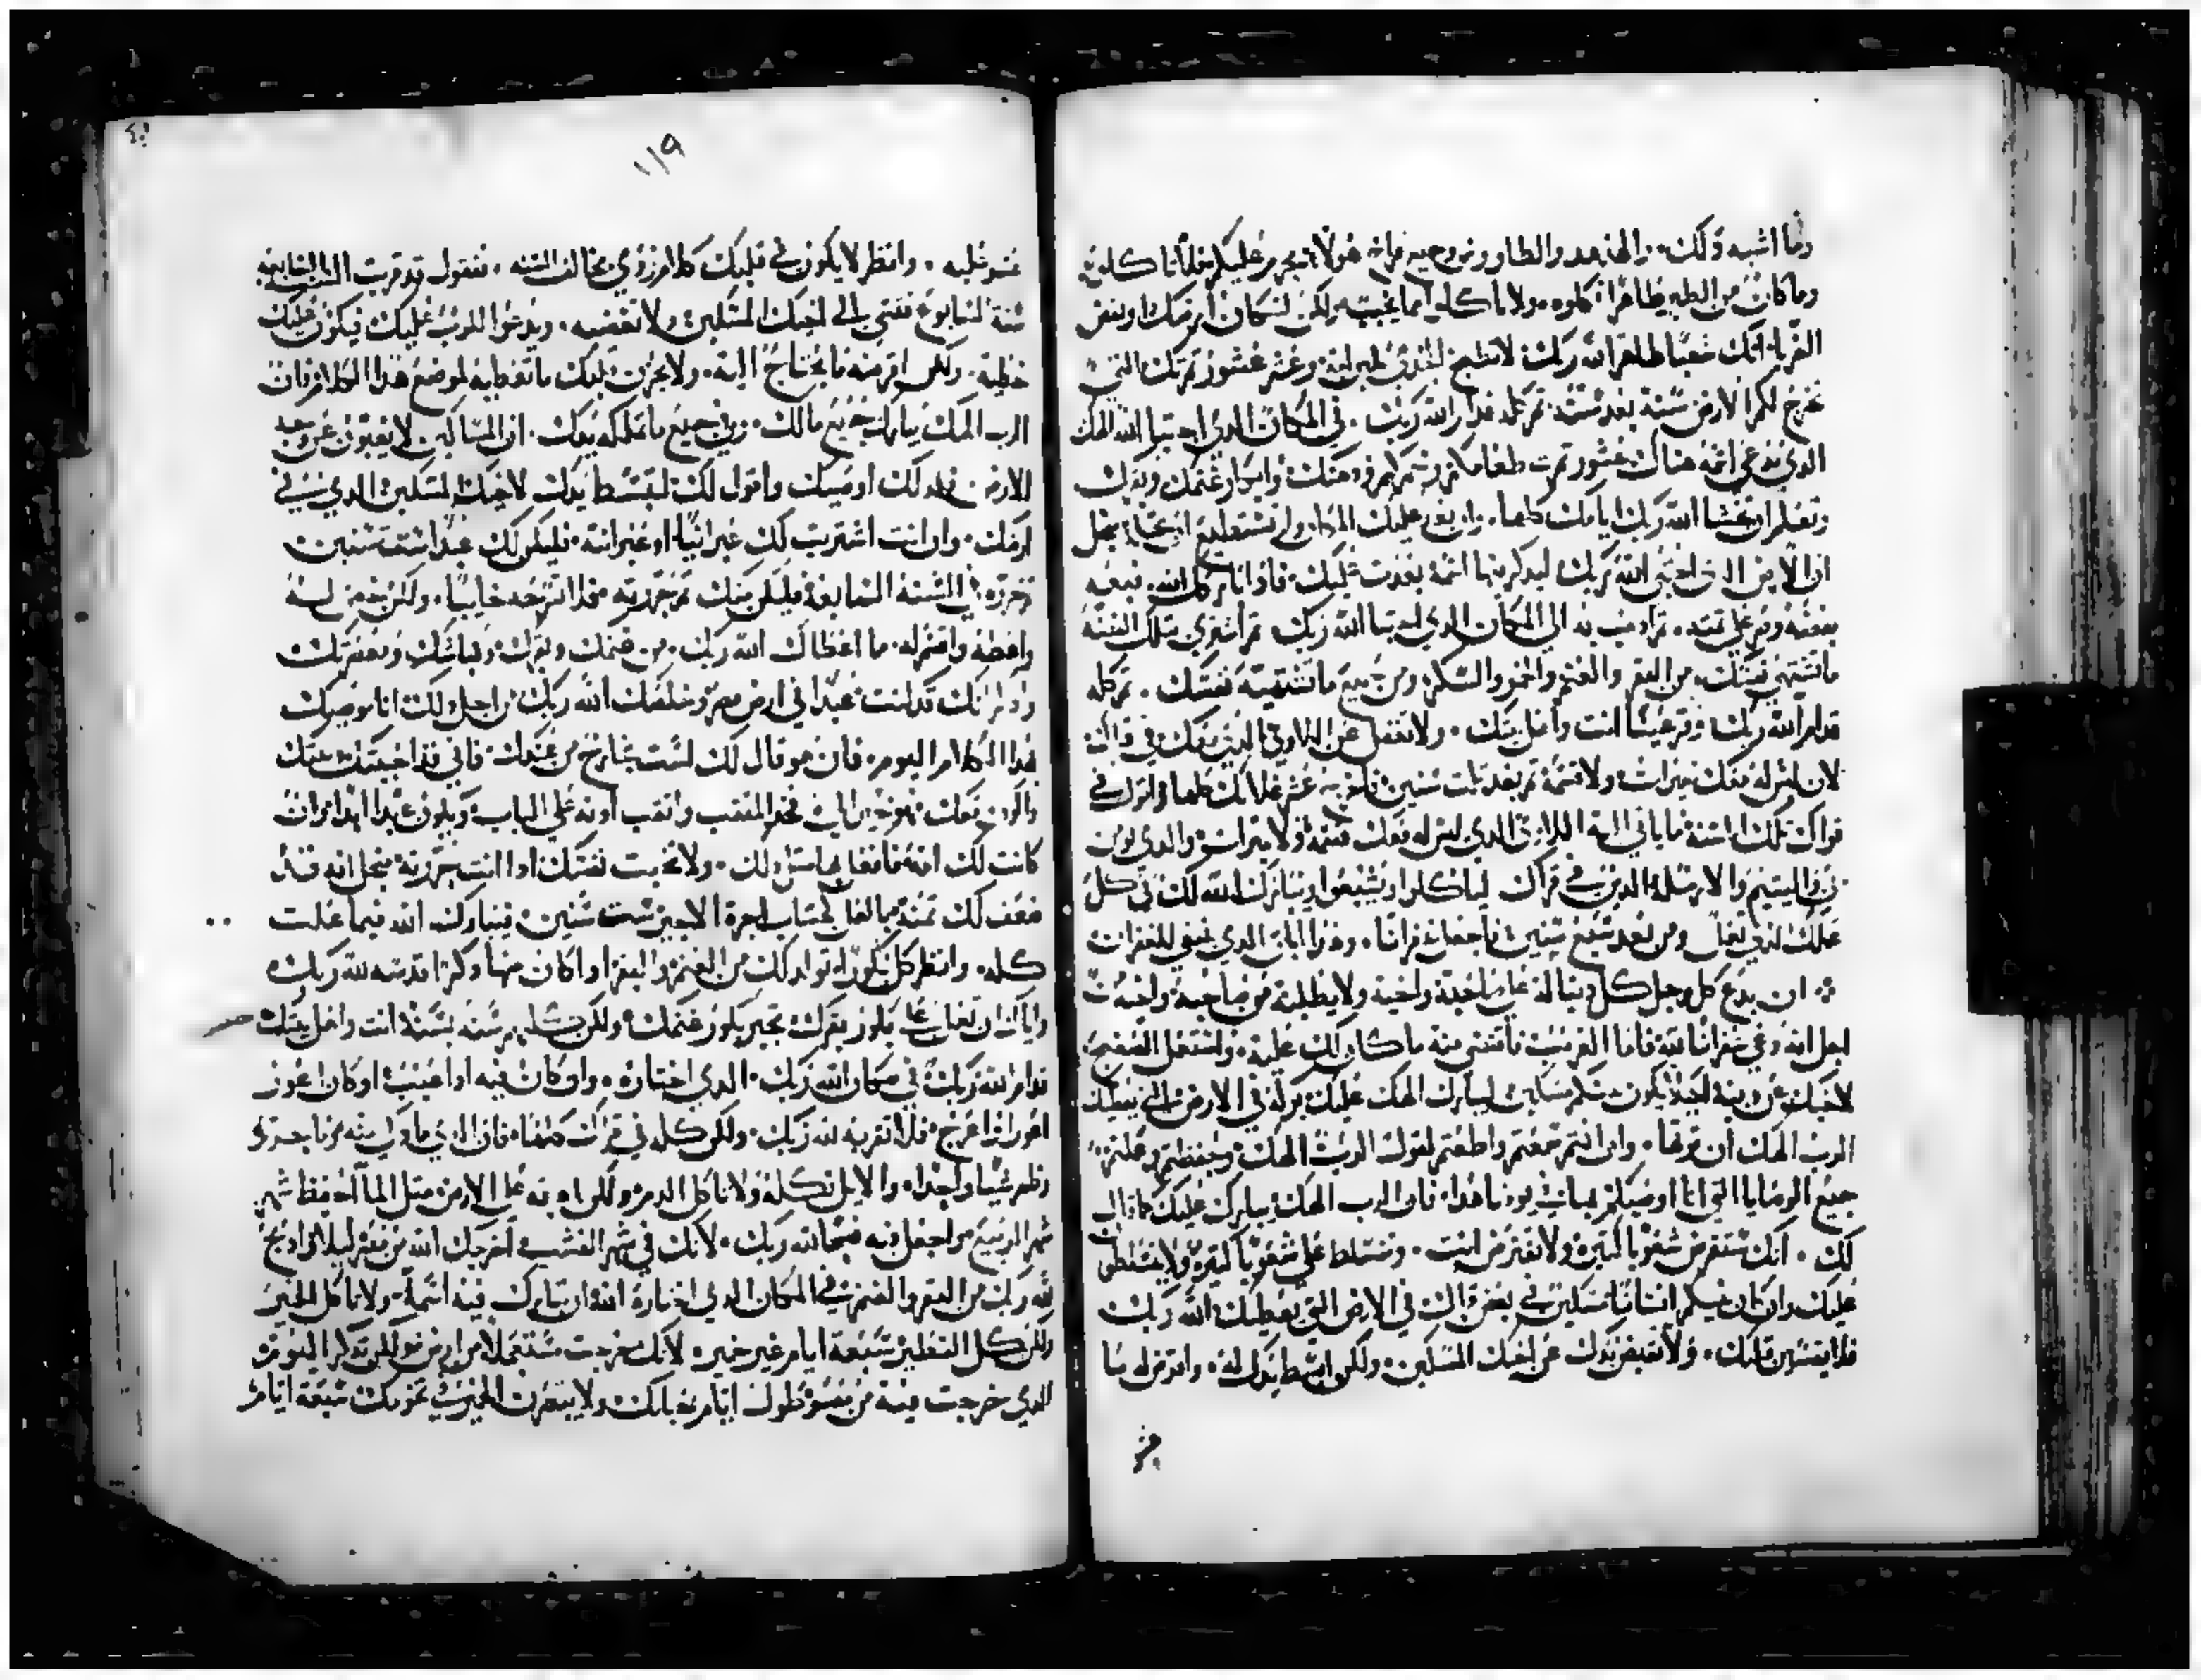 وما اشبه ذلك والهدهد والطاووس وجميع فراخ هولا تحرم عليكم فلا تاكلوه
وما كان من الطير طاهرا كلوه ولا تاكلوا مما يجيبه ولكن لسكان ارضك او لبعض
الغربا انك شعبا طاهرا لله ربك لا تطبخ الجدي بلبن امه وعشر عشور ثمرتك التي
تخرج لكم الارض سنة بعد سنة ثم كله قدام الله ربك في المكان الذي اجتبا الله الهك
الذي يدعي اسمه هناك عشور طعامك وخمرك ودهنك وابكار غنمك وبقرك
وتعلم ان تخشا الله ربك ايامك كلها وان بعد عليك المكان ولم تستطيع من اجل
ان الارض التي اجتبي الله ربك ليذكر فيها اسمه بعدت عليك فاذا باركك الله فبعه
بفضة وصر علي ثمنه ثم اذهب به الي المكان الذي اجتبا الله ربك ثم اشتري بتلك الفضة
ما تشتهي نفسك من البقر والغنم والخمر والسكر ومن جميع ما تشتهيه نفسك ثم كله
قدام الله ربك وقر عينا انت واهل بيتك ولا تغفل عن اللاوي الذي معك في قراك
لان ليس له معك ميراث ولا قسمة ثم بعد ثلث سنين فاخرج عشر غلاتك كلها واتركه في
قراك تلك السنة فاياتي اليه اللاوي الذي ليس له معك قسمة ولا ميراث والذي يوب
لي واليتيم والارملة الذين في قراك لياكلوا ويشبعوا ويبارك الله لك في كل
عملك الذي تعمل ومن بعد سبع سنين فاجعله غفرانا وهذا اباب الذي ينبغي للغفران
ان يدع كل رجل كل دين له علي صاحبه واخيه ولا يطلبه من صاحبه واخيه
لجل انه دعي غفرانا لله فاما الغريب فاقتضي منه ما كان لك عليه واستعمل الصفح
لاخيك عن دينه ليلا يكون منكم مسكين ليبارك الهك عليك بركة في الارض التي يعطيك
الرب الهك ان ترثها وان انتم سمعتم واطعتم لقول الرب الهك وحفظتم وعملتم
جميع الوصايا التي انا اوصيكم بها في يومنا هذا فان الرب الهك يبارك عليك كما قال
لك انك ستقرض شعوبا كثيرة ولا تقترض انت وتتسلط علي شعوبا كثيرة ولا يتسلطوا
عليك وان كان فيكم انسانا مسكين في بعض قراك في الارض التي يعطيك الله ربك
فلا يقسون قلبك ولا تقبض يدك عن اخيك المسكين ولكن ابسط يدك له واقرضه ما
١١٩
عسر عليه وانظر لا يكون في قلبك كلام ردي يخالف السنه فتقول قد قربت السنة السابعه
سنة السابوع فتسي الي اخيك المسكين ولا تعطيه ويدعوا للرب عليك فيكون عليك
خطية ولكن اقرضه ما يحتاج اليه ولا يحزن قلبك ما تعطيه لموضع هذا الكلام فان
الرب الهك يبارك جميع مالك وفي جميع ما تملكه يدك ان المساكين لا يفنون عن وجه
الارض فلذلك اوصيك واقول لك لتبسط يدك لاخيك المسكين الذي في
ارضك وان انت اشتريت لك عبرانيا او عبرانية فليكن لك عبدا ست سنين
حرره في السنة السابعة فليكن منك ثم حررته فلا تخرجه خايبا ولكن
واعطه واقسم له ما اعطاك الله ربك من غنمك وبقرك ومعصرتك
واذكر انك قد كنت عبدا في ارض مصر وخلصك الله ربك من اجل ذلك انا موصيك
هذا الكلام اليوم فان هو قال لك لست بخارج من عندك فاني قد احببتك وبيتك
والكون معك فخذ المثقب واثقب اذنه علي الباب ويكون عبدا ابدا وان
كانت لك امة فافعل بها مثل ذلك ولا تحبب نفسك اذا انت حررته من اجل انه قد
ضعف لك ثمنه مما لها لحساب اجرة الاجير ست سنين فيبارك الله فيما عملت
كله وانظر كل بكور توالدلك من الغنم والبقر اذا كان منها ذكرا قدسه لله ربك
واياك ان تعمل علي بكور بقرك وتجز بكور غنمك ولكن كله سنه بسنة انت واهل بيتك
قدام الله ربك في مكان الله ربك الذي اختاره وان كان فيه اذا عيب او كان اعور
اعور او اعرج فلا تقربه لله ربك ولكن كله في قراك كلها فان الذي
وطهر شيا واحدا والايل تاكله ولا تاكل الدم ولكن اهرقه علي الارض مثل الما احفظ شهر
شهر الربيع ثم اجعل فيه فسحا لله ربك لانك في شهر العشب اخرجك الله من مصر ليلا واذبح
لله ربك من البقر والغنم في المكان الذي اختاره الله ان يبارك فيه اسمه ولا تاكل الخبز
ولكن كل الفطير سبعة ايام غير خمير لانك خرجت مستعجلا من ارض مصر لكي تذكر اليوم
الذي خرجت فيه من مصر طول ايام حياتك ولا يتعرف الخمير في تخومك سبعة ايام